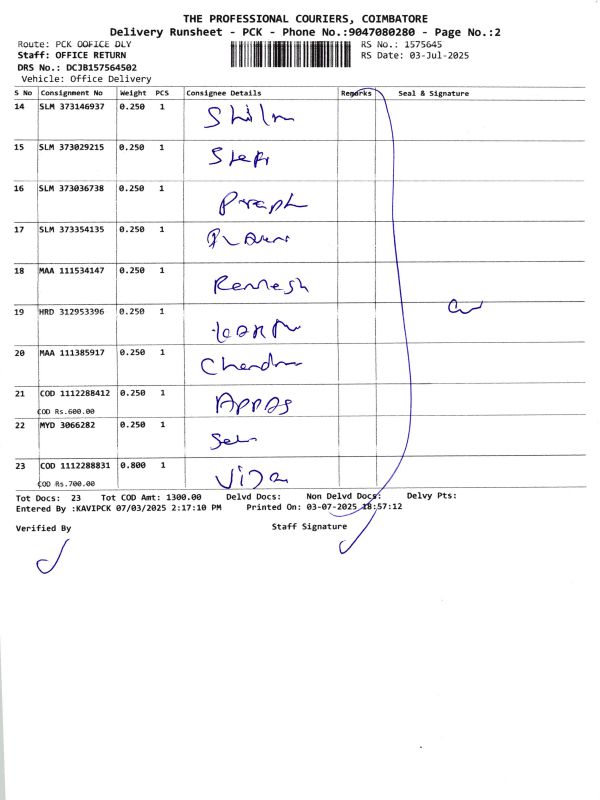 THE PROFESSIONAL COURIERS, COIMBATORE
Delivery Runsheet - PCK - Phone No.:9047080280 - Page No.:2
Route: PCK OOFICE DLY
RS No.: 1575645
Staff: OFFICE RETURN
RS Date: 03-Jul-2025
DRS No.: DCJB157564502
Vehicle: Office Delivery
S No Consignment No Weight PCS Consignee Details Remarks Seal & Signature
14 SLM 373146937 0.250 1
15 SLM 373029215 0.250 1
16 SLM 373036738 0.250 1
17 SLM 373354135 0.250 1
18 MAA 111534147 0.250 1 Remesh
19 HRD 312953396 0.250 1
20 MAA 111385917 0.250 1 Chandra
21 COD 1112288412 0.250 1 Appas
COD Rs.600.00
22 MYD 3066282 0.250 1
23 COD 1112288831 0.800 1
COD Rs.700.00
Tot Docs: 23 Tot COD Amt: 1300.00 Delvd Docs: Non Delvd Docs: Delvy Pts:
Entered By :KAVIPCK 07/03/2025 2:17:10 PM Printed On: 03-07-2025 18:57:12
Verified By Staff Signature